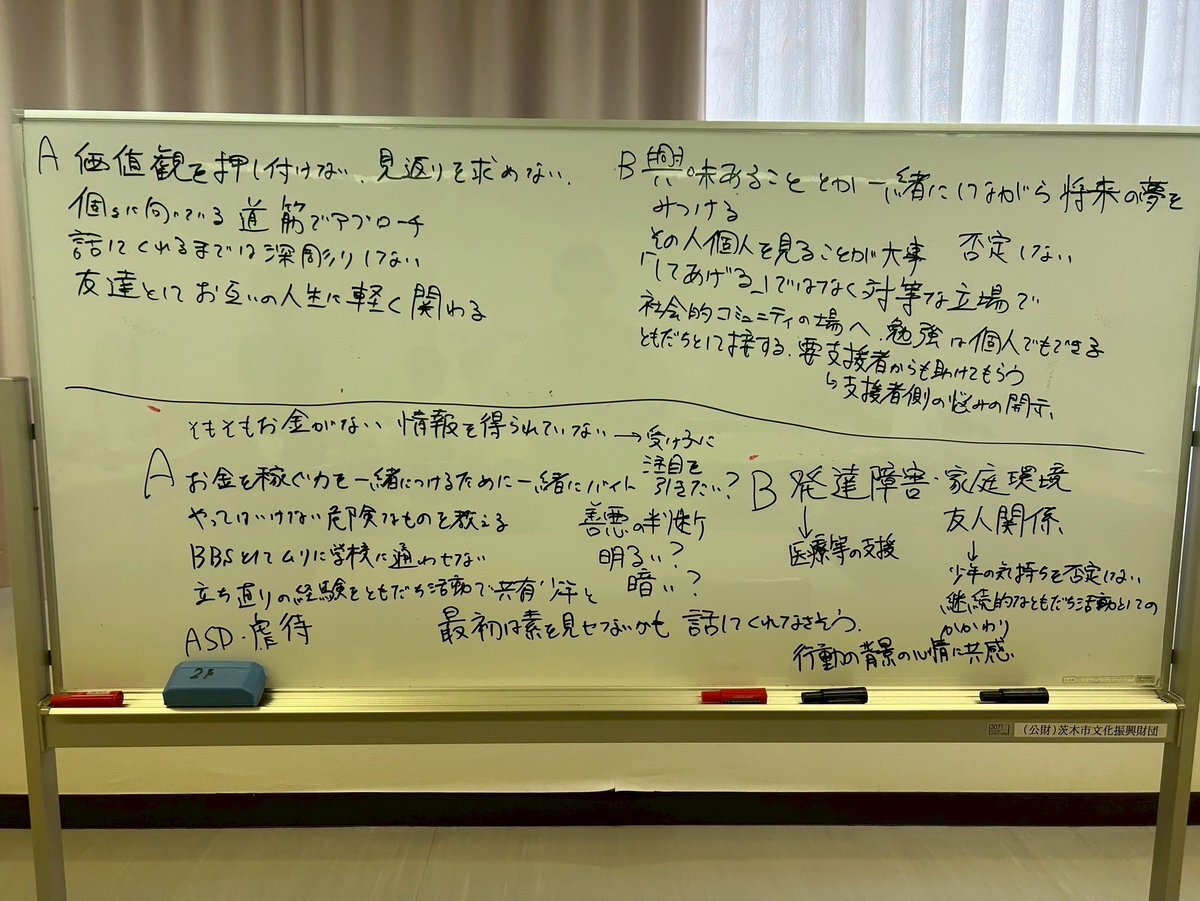 A 価値観を押し付けない、見返りを求めない、
個々に向いている道筋でアプローチ
話してくれるまでは深彫りしない
友達としてお互いの人生に軽く関わる
B 興味あることとか一緒にしながら将来の夢を
みつける
その人個人を見ることが大事 否定しない
「してあげる」ではなく対等な立場で
社会的コミュニティの場へ、勉強は個人でもできる
ともだちとして接する、要支援者からも助けてもらう
↳支援者側の悩みの開示、
そもそもお金がない 情報を得られていない → 受け子に
注目を
引きたい?
A お金を稼ぐ力を一緒につけるために一緒にバイト
やってはいけない危険なものを教える
BBSとしてムリに学校に通わせない
立ち直りの経験をともだち活動で共有 少年と
ASD・虐待
善悪の判断が
明るい?
暗い?
最初は素を見せないかも 話してくれなさそう、
B 発達障害・家庭環境
友人関係、
↓
医療等の支援
↓
少年の気持ちを否定しない
継続的なともだち活動としての
かかわり
行動の背景の心情に共感、
2F
3071
(公財)茨木市文化振興財団